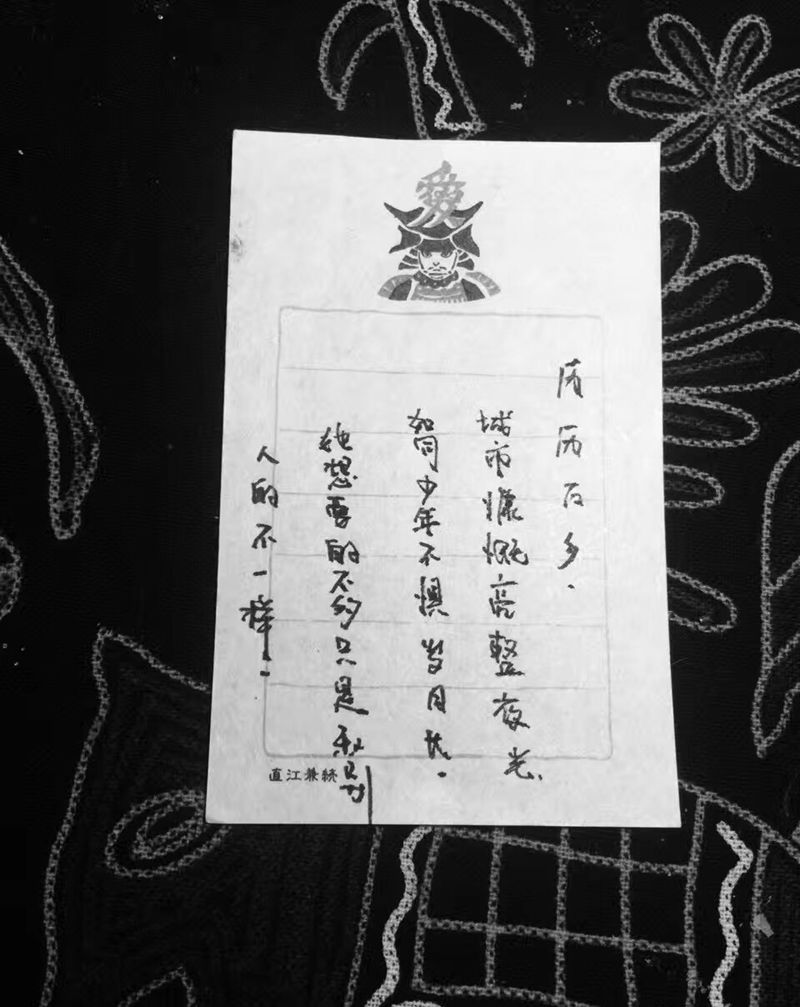 愛
历历万乡.
城市慷慨亮整夜光、
如同少年不惧岁月长.
她想要的不多只是和别
人的不一样..
直江兼続